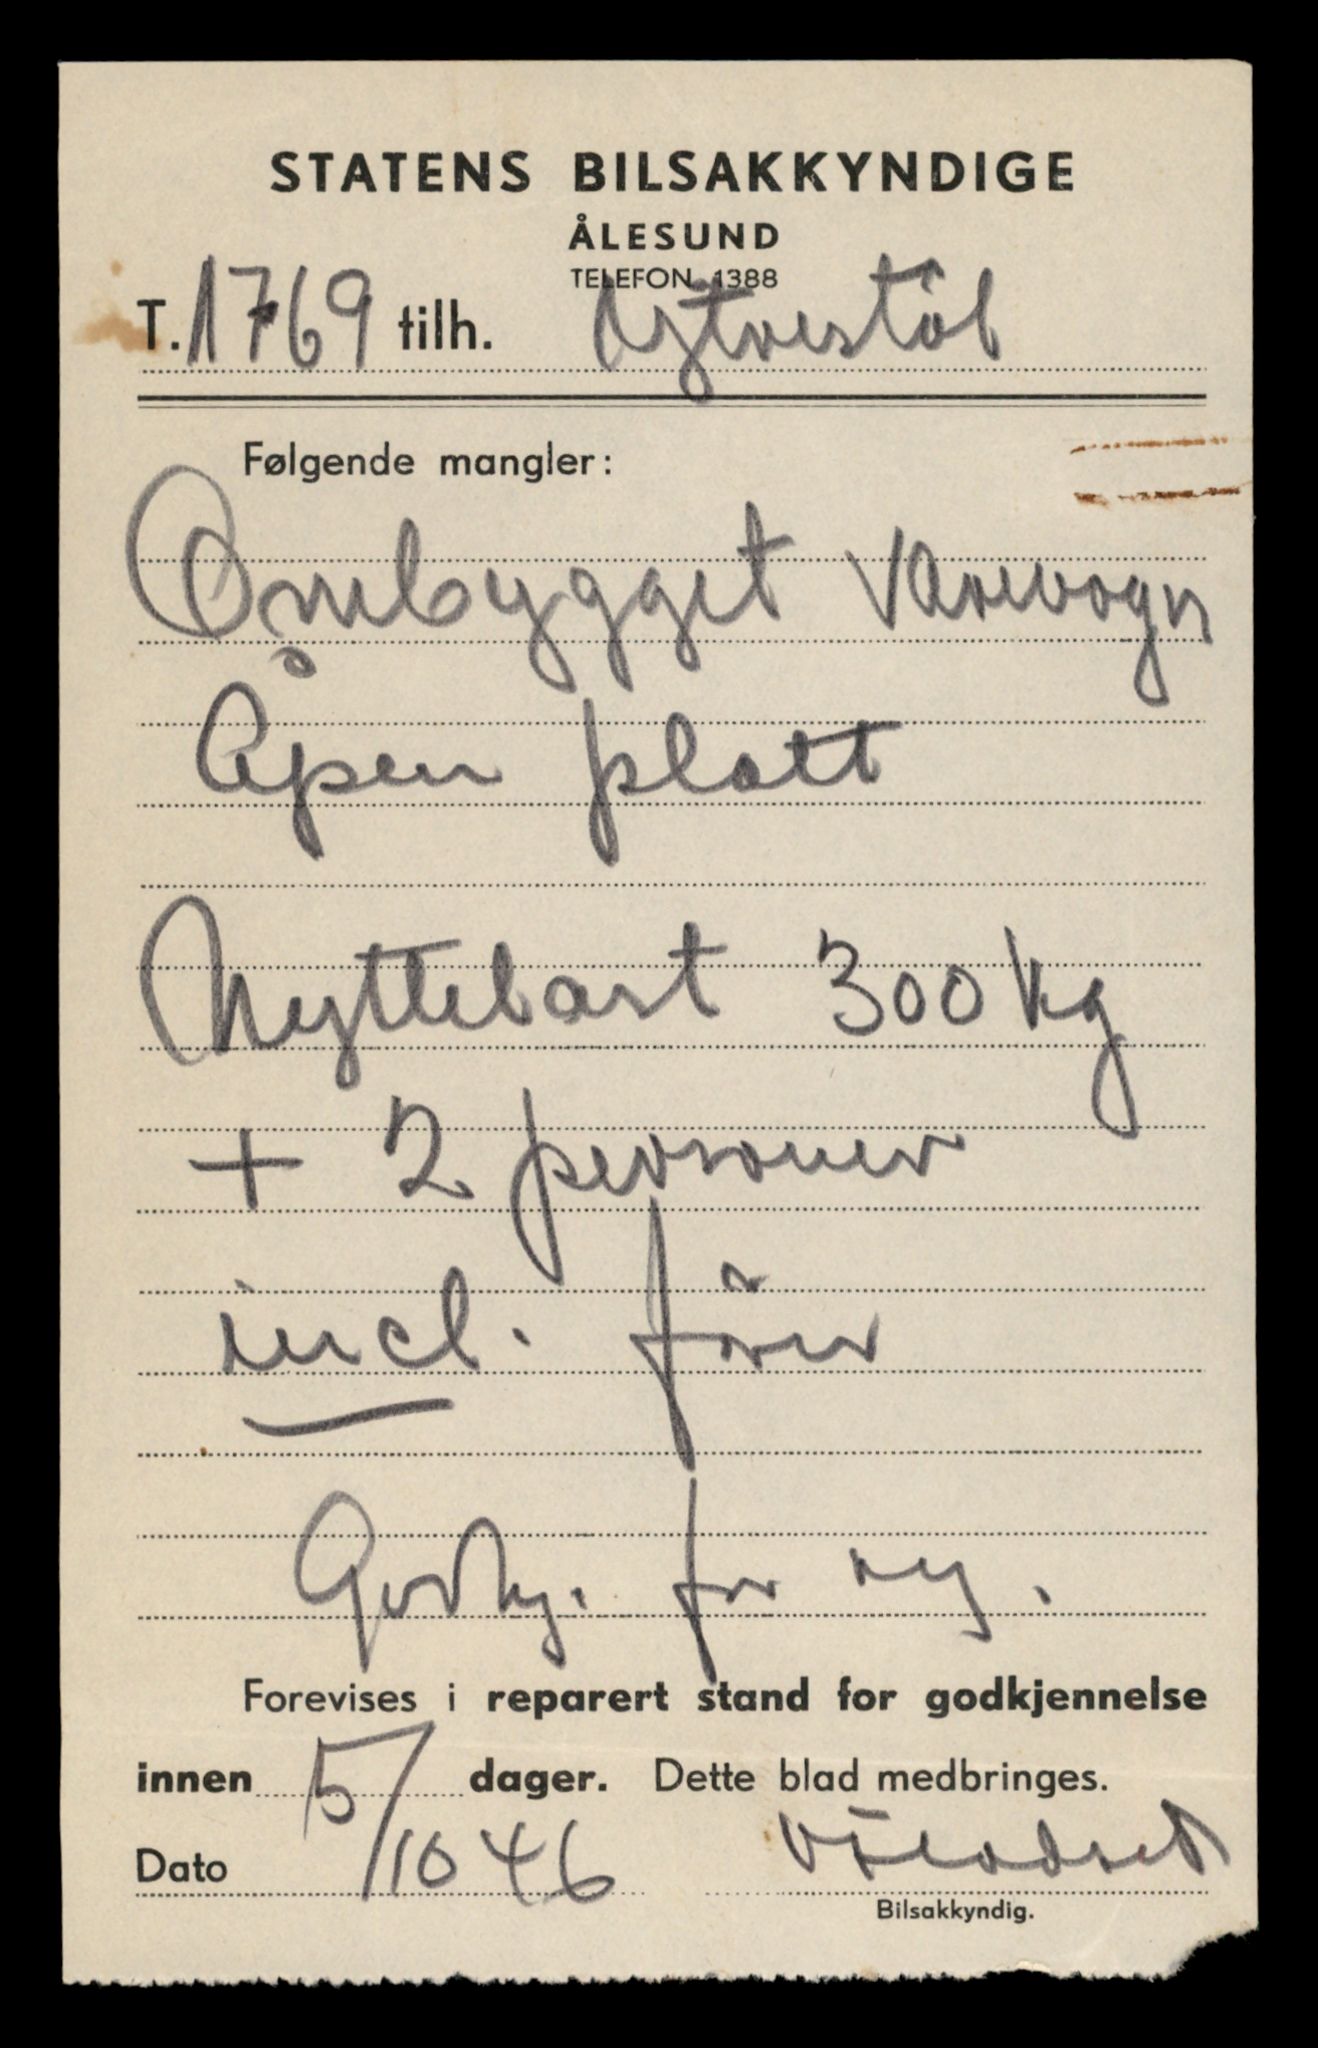 STATENS BILSAKKYNDIGE
ÅLESUND
TELEFON 1388
T. 1769 tilh.
Følgende mangler:
Ombygget Varevogn
Åpen platt
Nyttelast 300 kg
+ 2 personer
incl. fører
Godkj. for ny.
Forevises i reparert stand for godkjennelse
innen dager. Dette blad medbringes.
Dato 5/10 46
Bilsakkyndig.